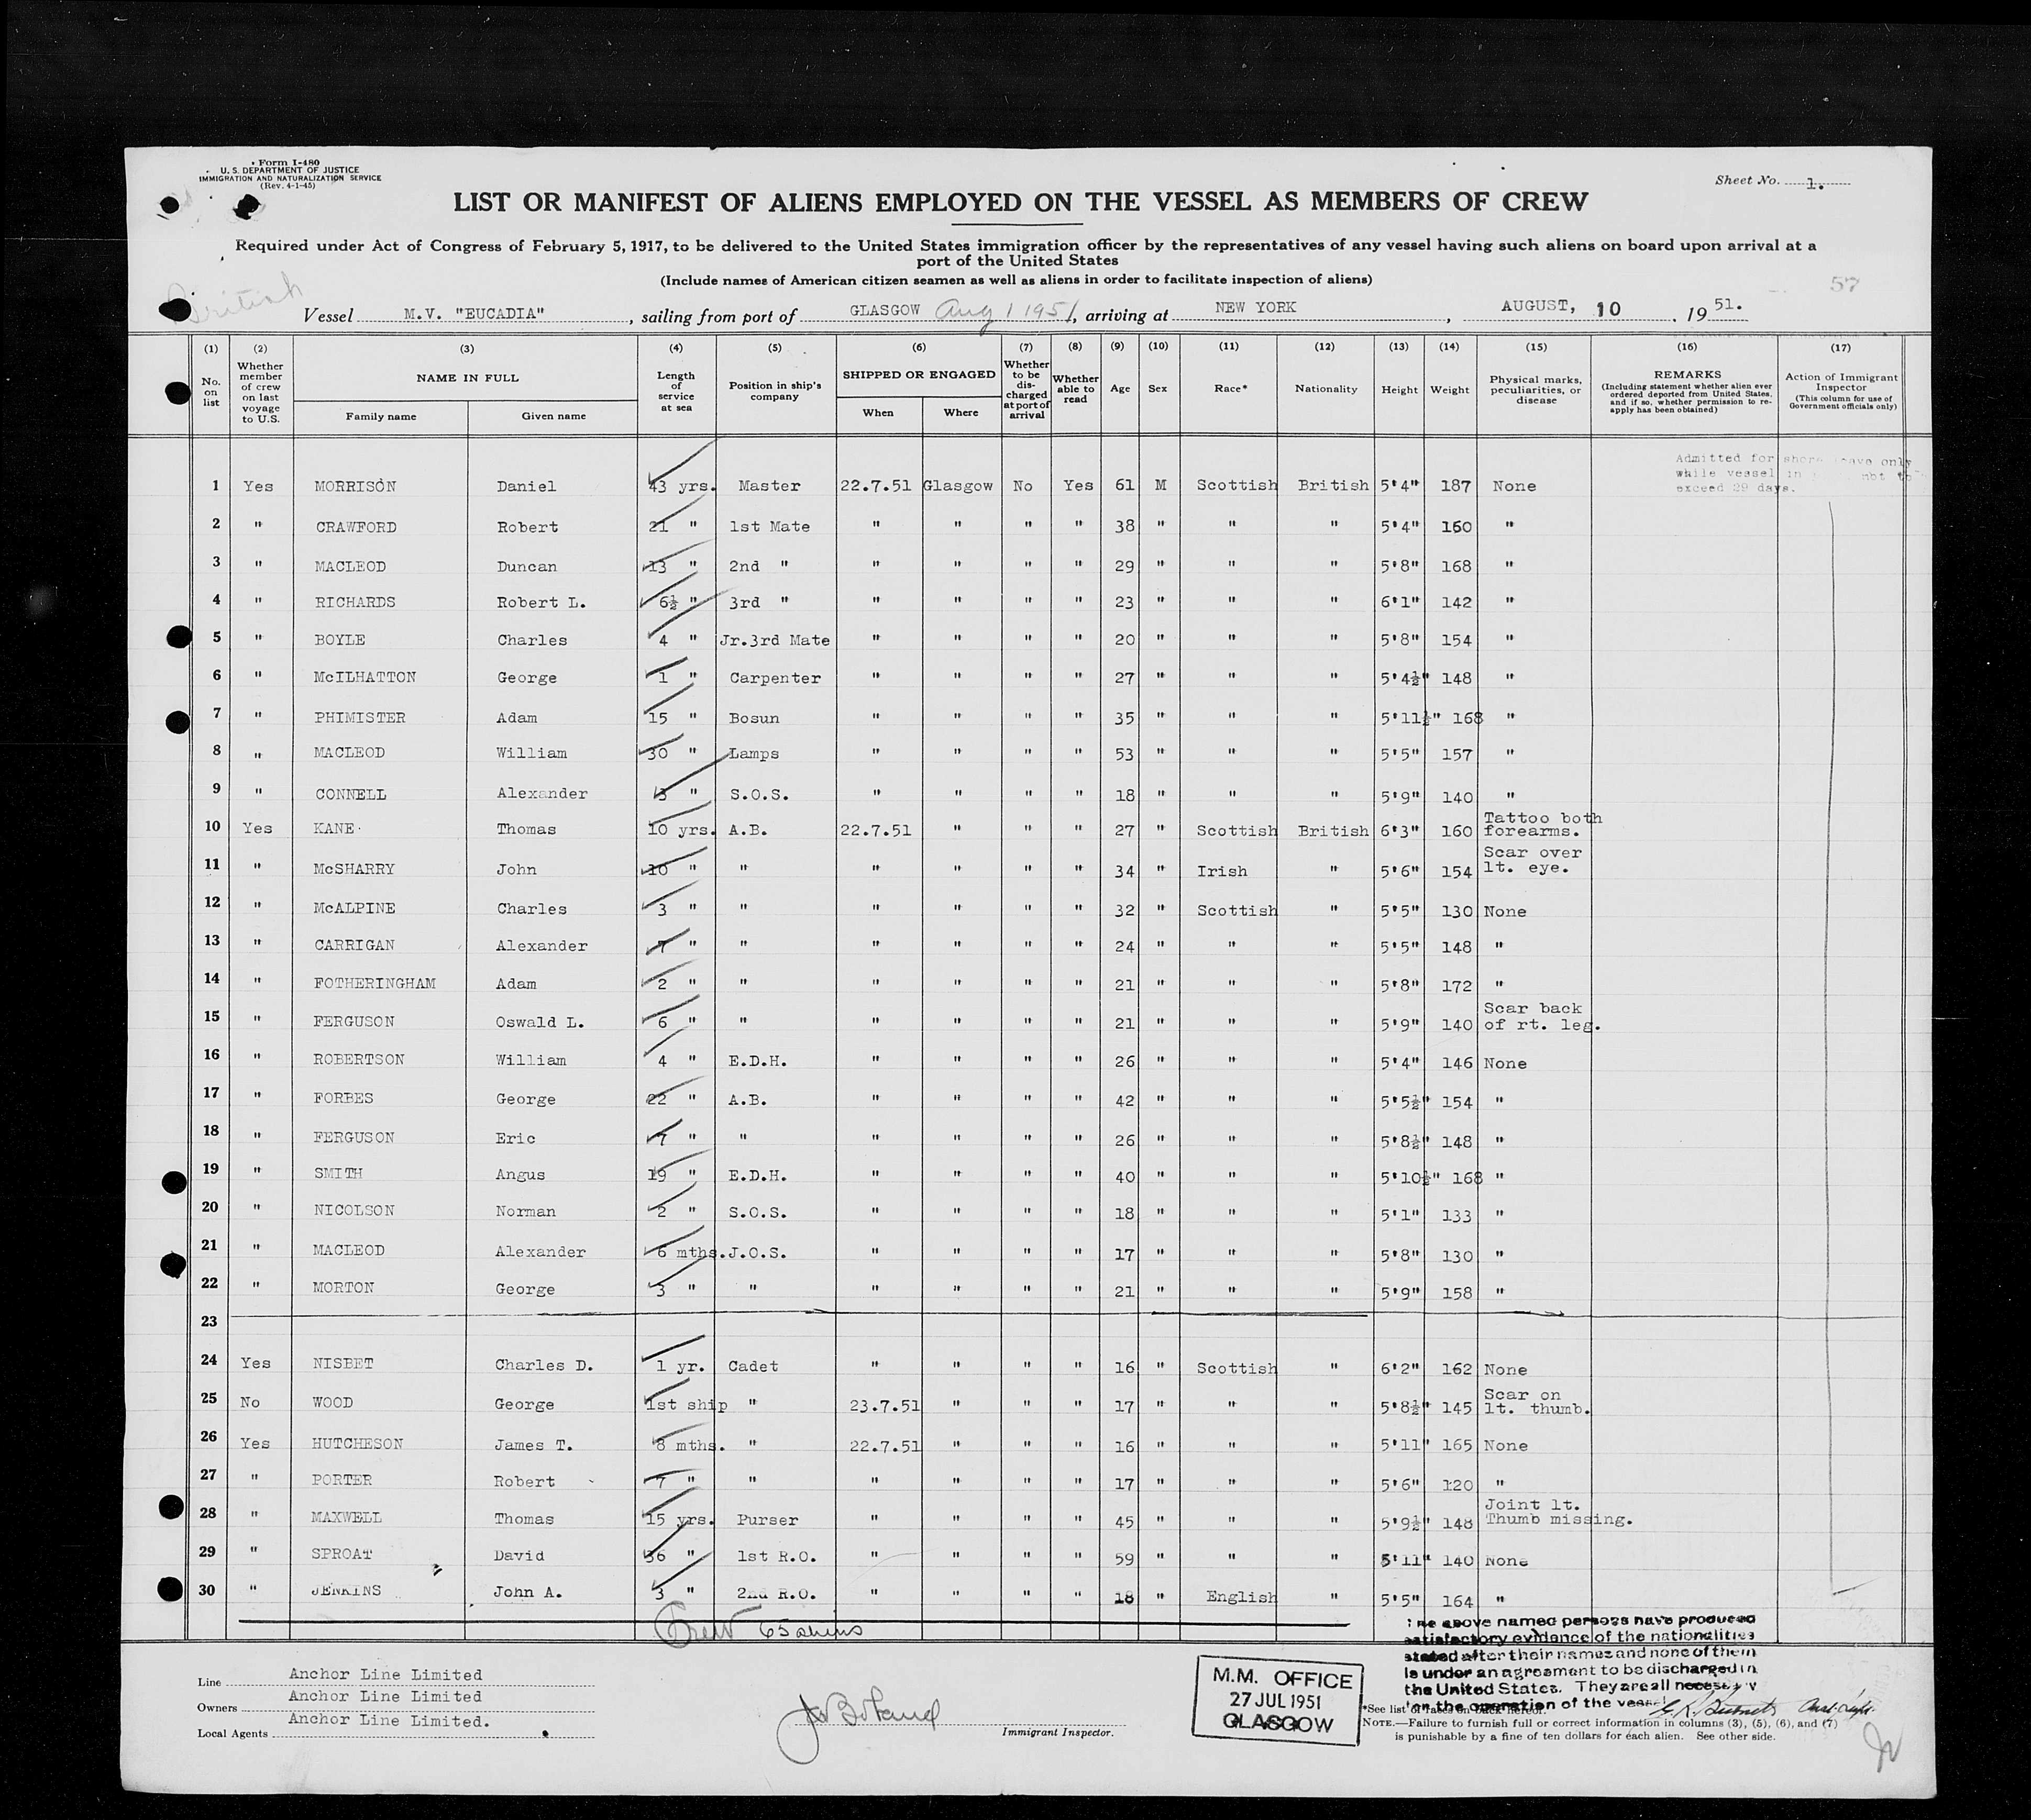 Form I-480
U. S. DEPARTMENT OF JUSTICE
IMMIGRATION AND NATURALIZATION SERVICE
(Rev. 4-1-45)
Sheet No. 1.
LIST OR MANIFEST OF ALIENS EMPLOYED ON THE VESSEL AS MEMBERS OF CREW
Required under Act of Congress of February 5, 1917, to be delivered to the United States immigration officer by the representatives of any vessel having such aliens on board upon arrival at a
port of the United States
(Include names of American citizen seamen as well as aliens in order to facilitate inspection of aliens)
57
British
Vessel M.V. "EUCADIA", sailing from port of GLASGOW Aug 1 1951, arriving at NEW YORK, AUGUST, 10, 1951.
(1) (2) (3) (4) (5) (6) (7) (8) (9) (10) (11) (12) (13) (14) (15) (16) (17)
No. on list
Whether member of crew on last voyage to U.S.
NAME IN FULL
Family name Given name
Length of service at sea
Position in ship's company
SHIPPED OR ENGAGED
When Where
Whether to be discharged at port of arrival
Whether able to read
Age
Sex
Race*
Nationality
Height
Weight
Physical marks, peculiarities, or disease
REMARKS
(Including statement whether alien ever ordered deported from United States, and if so, whether permission to re-apply has been obtained)
Action of Immigrant Inspector
(This column for use of Government officials only)
Admitted for shore leave only
while vessel in not to
exceed 29 days.
1 Yes MORRISON Daniel 43 yrs. Master 22.7.51 Glasgow No Yes 61 M Scottish British 5'4" 187 None
2 " CRAWFORD Robert 21 " 1st Mate " " " " 38 " " " 5'4" 160 "
3 " MACLEOD Duncan 13 " 2nd " " " " " 29 " " " 5'8" 168 "
4 " RICHARDS Robert L. 6½ " 3rd " " " " " 23 " " " 6'1" 142 "
5 " BOYLE Charles 4 " Jr.3rd Mate " " " " 20 " " " 5'8" 154 "
6 " McILHATTON George 1 " Carpenter " " " " 27 " " " 5'4½" 148 "
7 " PHIMISTER Adam 15 " Bosun " " " " 35 " " " 5'11½" 168 "
8 " MACLEOD William 30 " Lamps " " " " 53 " " " 5'5" 157 "
9 " CONNELL Alexander 3 " S.O.S. " " " " 18 " " " 5'9" 140 "
10 Yes KANE Thomas 10 yrs. A.B. 22.7.51 " " " 27 " Scottish British 6'3" 160 Tattoo both forearms.
11 " McSHARRY John 10 " " " " " " 34 " Irish " 5'6" 154 Scar over lt. eye.
12 " McALPINE Charles 3 " " " " " " 32 " Scottish " 5'5" 130 None
13 " CARRIGAN Alexander 7 " " " " " " 24 " " " 5'5" 148 "
14 " FOTHERINGHAM Adam 2 " " " " " " 21 " " " 5'8" 172 "
15 " FERGUSON Oswald L. 6 " " " " " " 21 " " " 5'9" 140 Scar back of rt. leg.
16 " ROBERTSON William 4 " E.D.H. " " " " 26 " " " 5'4" 146 None
17 " FORBES George 22 " A.B. " " " " 42 " " " 5'5½" 154 "
18 " FERGUSON Eric 7 " " " " " " 26 " " " 5'8½" 148 "
19 " SMITH Angus 19 " E.D.H. " " " " 40 " " " 5'10½" 168 "
20 " NICOLSON Norman 2 " S.O.S. " " " " 18 " " " 5'1" 133 "
21 " MACLEOD Alexander 6 mths. J.O.S. " " " " 17 " " " 5'8" 130 "
22 " MORTON George 3 " " " " " " 21 " " " 5'9" 158 "
23
24 Yes NISBET Charles D. 1 yr. Cadet " " " " 16 " Scottish " 6'2" 162 None
25 No WOOD George 1st ship " 23.7.51 " " " 17 " " " 5'8½" 145 Scar on lt. thumb.
26 Yes HUTCHESON James T. 8 mths. " 22.7.51 " " " 16 " " " 5'11" 165 None
27 " PORTER Robert 7 " " " " " " 17 " " " 5'6" 120 "
28 " MAXWELL Thomas 15 yrs. Purser " " " " 45 " " " 5'9½" 148 Joint lt. Thumb missing.
29 " SPROAT David 36 " 1st R.O. " " " " 59 " " " 5'11" 140 None
30 " JENKINS John A. 3 " 2nd R.O. " " " " 18 " English " 5'5" 164 "
Crew 65
The above named persons have produced
satisfactory evidence of the nationalities
stated after their names and none of them
is under an agreement to be discharged in
the United States. They are all necessary
for the operation of the vessel
Line Anchor Line Limited
Owners Anchor Line Limited
Local Agents Anchor Line Limited.
Immigrant Inspector.
M.M. OFFICE
27 JUL 1951
GLASGOW
*See list of races on back hereof.
NOTE.—Failure to furnish full or correct information in columns (3), (5), (6), and (7)
is punishable by a fine of ten dollars for each alien. See other side.